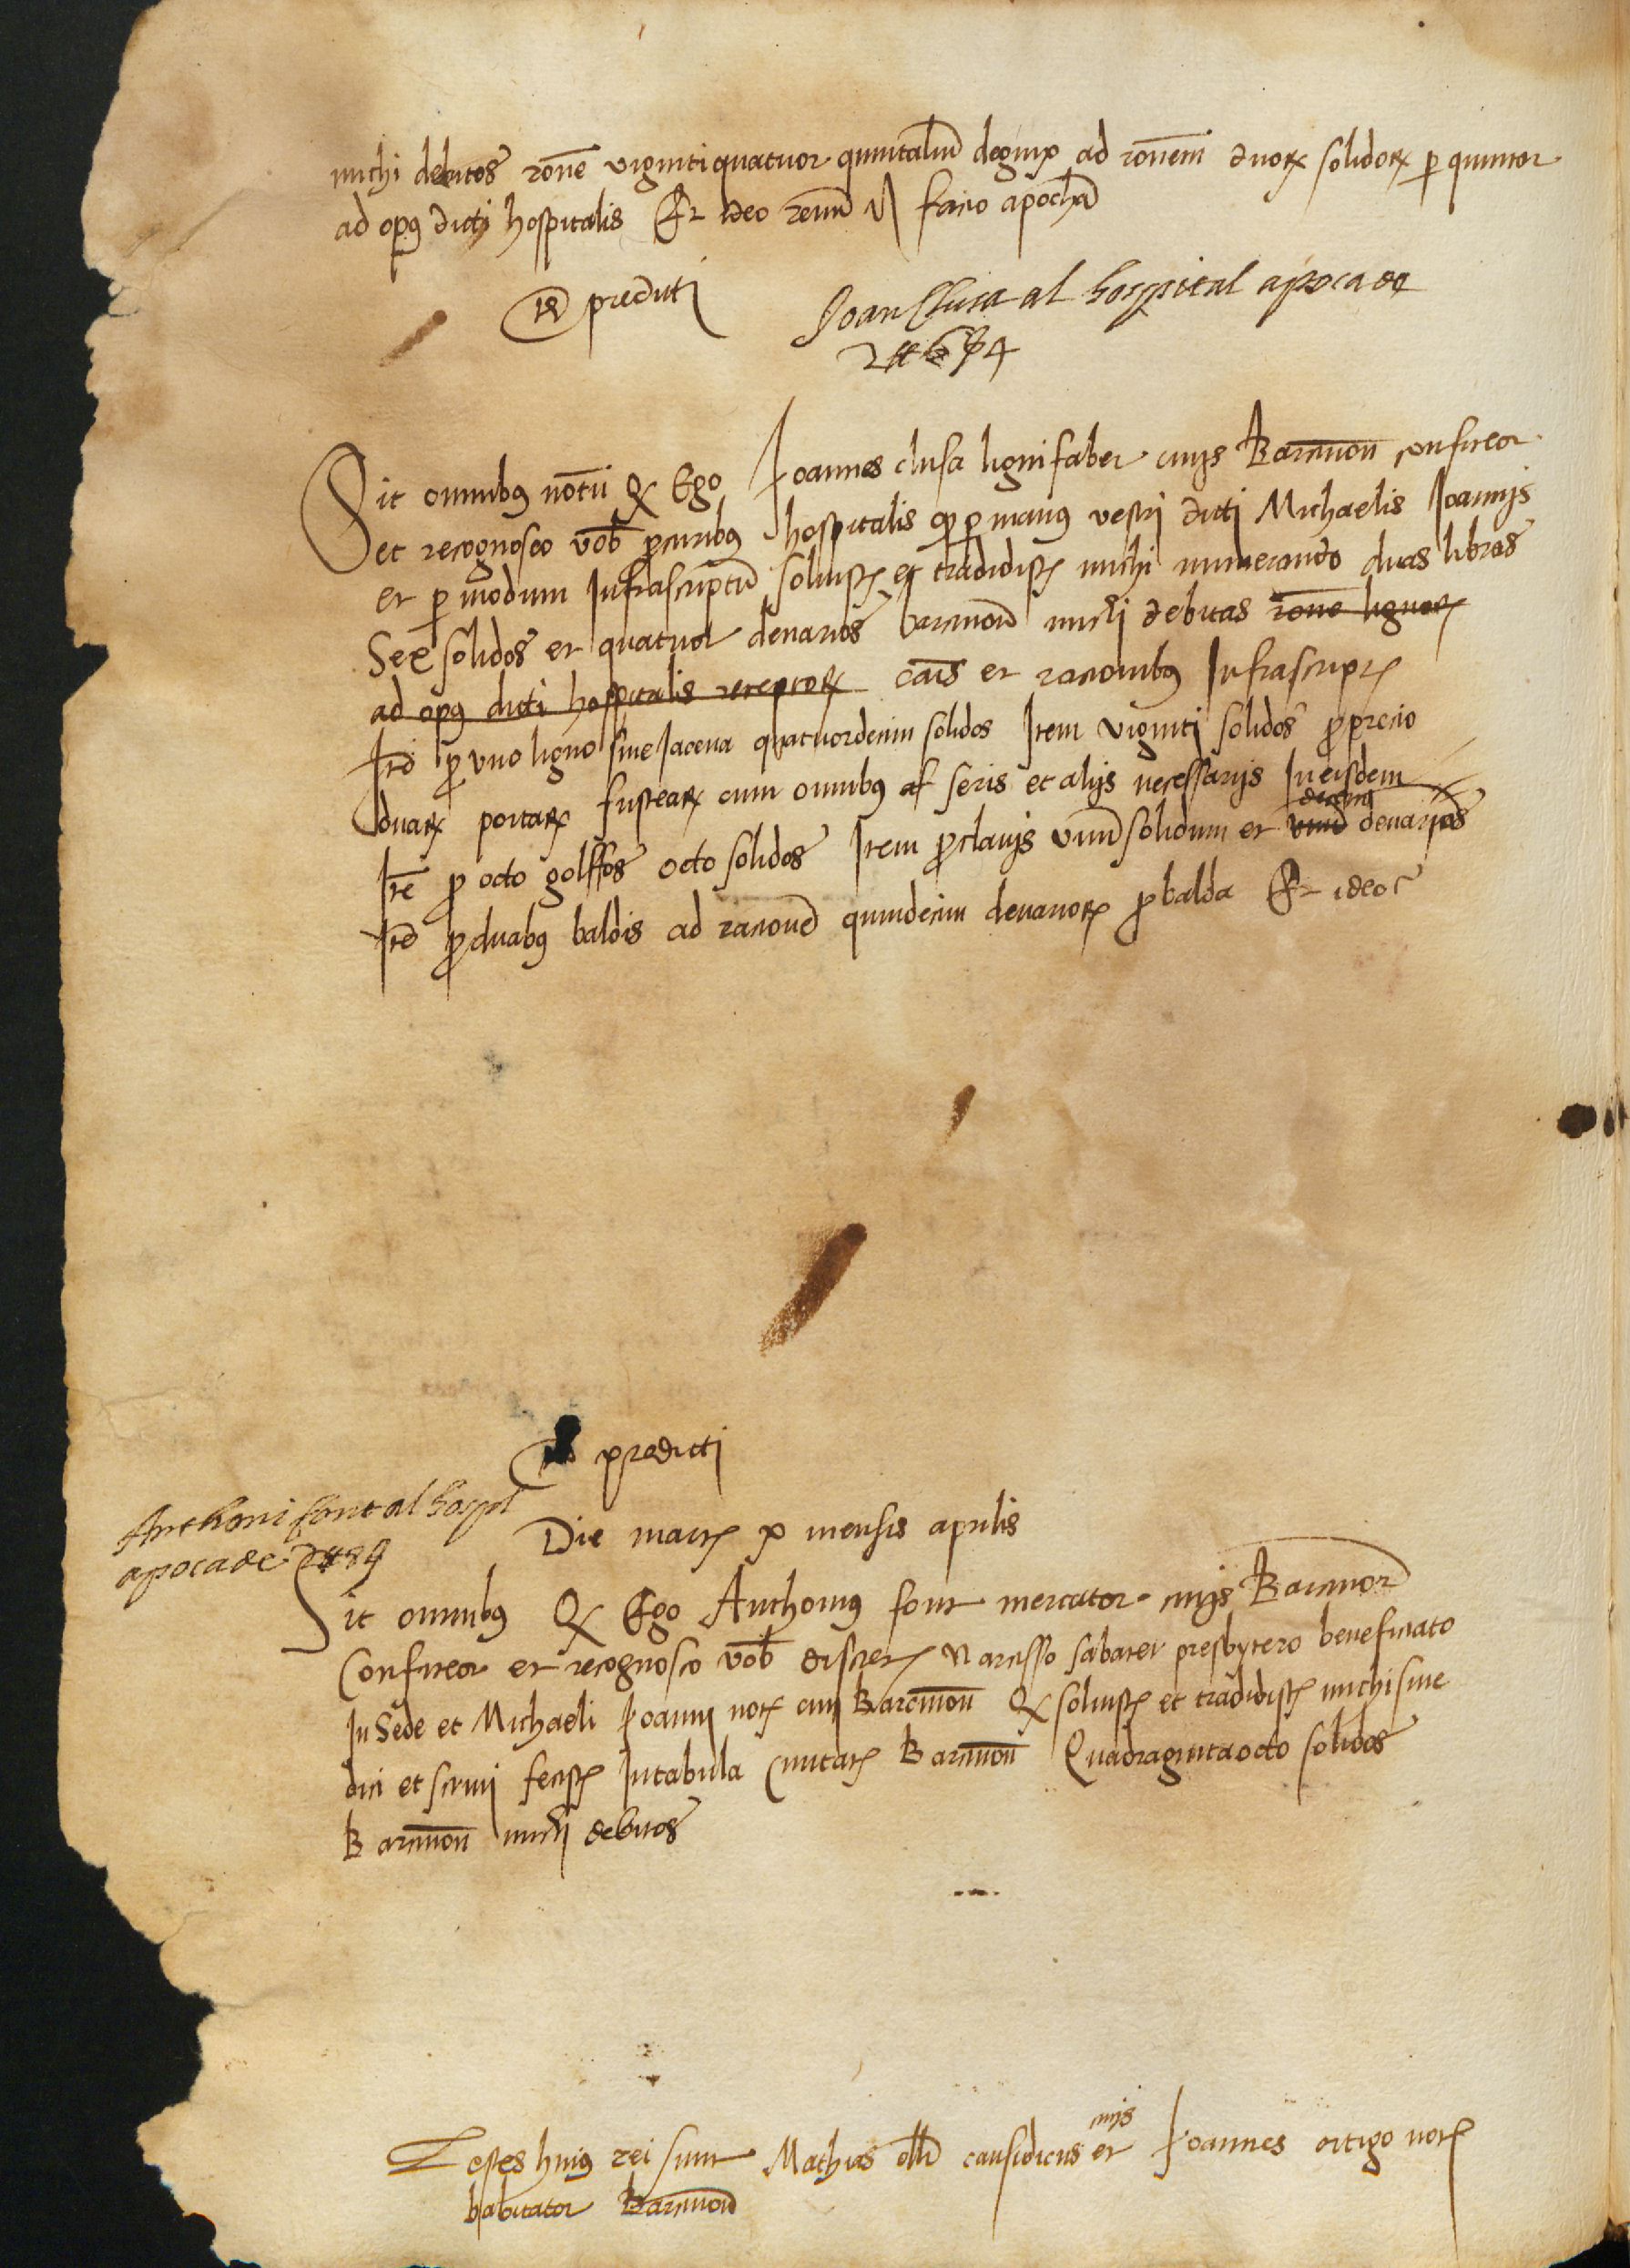 michi debitos rõne vigintiquatuor quintaliũ de guix ad rõnem duorꝝ solidorꝝ ꝑ quintar
ad opꝰ dicti hospitalis Et ideo renuñ facio apochã
T predicti
Joan Clusa al hospital apoca de
2 ₶ 6 ß 4
Sit omnibꝰ notũ Qꝫ Ego Joannes clusa lignifaber civis Barcinoñ confiteor
et recognosco vob ꝓcuribus hospitalis qꝫ ꝑ manus vestri dicti Michaelis Joannis
et ꝑ modum Infrascriptũ soluistis et tradidistis michi numerando duas libras
Sex solidos et quatuor denarios barcinoñ michi debitas rõne lignorꝝ
ad opꝰ dicti hospitalis receptorꝝ cãis et racionibꝰ Infrascriptis
Itẽ ꝓ vno ligno sive Jacena quatuordecim solidos Item viginti solidos ꝓ precio
duarꝝ portarꝝ fustearꝝ cum omnibꝰ af seris et alijs necessarijs In eisdem
Itẽ ꝓ octo golffos octo solidos Item ꝓ clavis vnũ solidum et vnũ decem denarios
Itẽ ꝓ duabꝰ baldis ad racionẽ quindecim denariorꝝ ꝓ balda Et ideo
predicti
Anthoni font al hospl
apoca de 2 ₶ 8 ß
Die martis x mensis aprilis
Sit omnibꝰ Qꝫ Ego Anthonius font mercator civis Barcinoñ
Confiteor et recognosco vob discretis Narcisso sabater presbytero beneficiato
In Sede et Michaeli Joanni notꝫ civi Barcinoñ Qꝫ soluistis et tradidistis michi sive
dici et scrivi fecistis In tabula Civitatis Barcinoñ Quadragintaocto solidos
Barcinoñ michi debitos
Testes huius rei sunt Mathias causidicus civis et Joannes ortigo notꝫ
habitator Barcinoñ